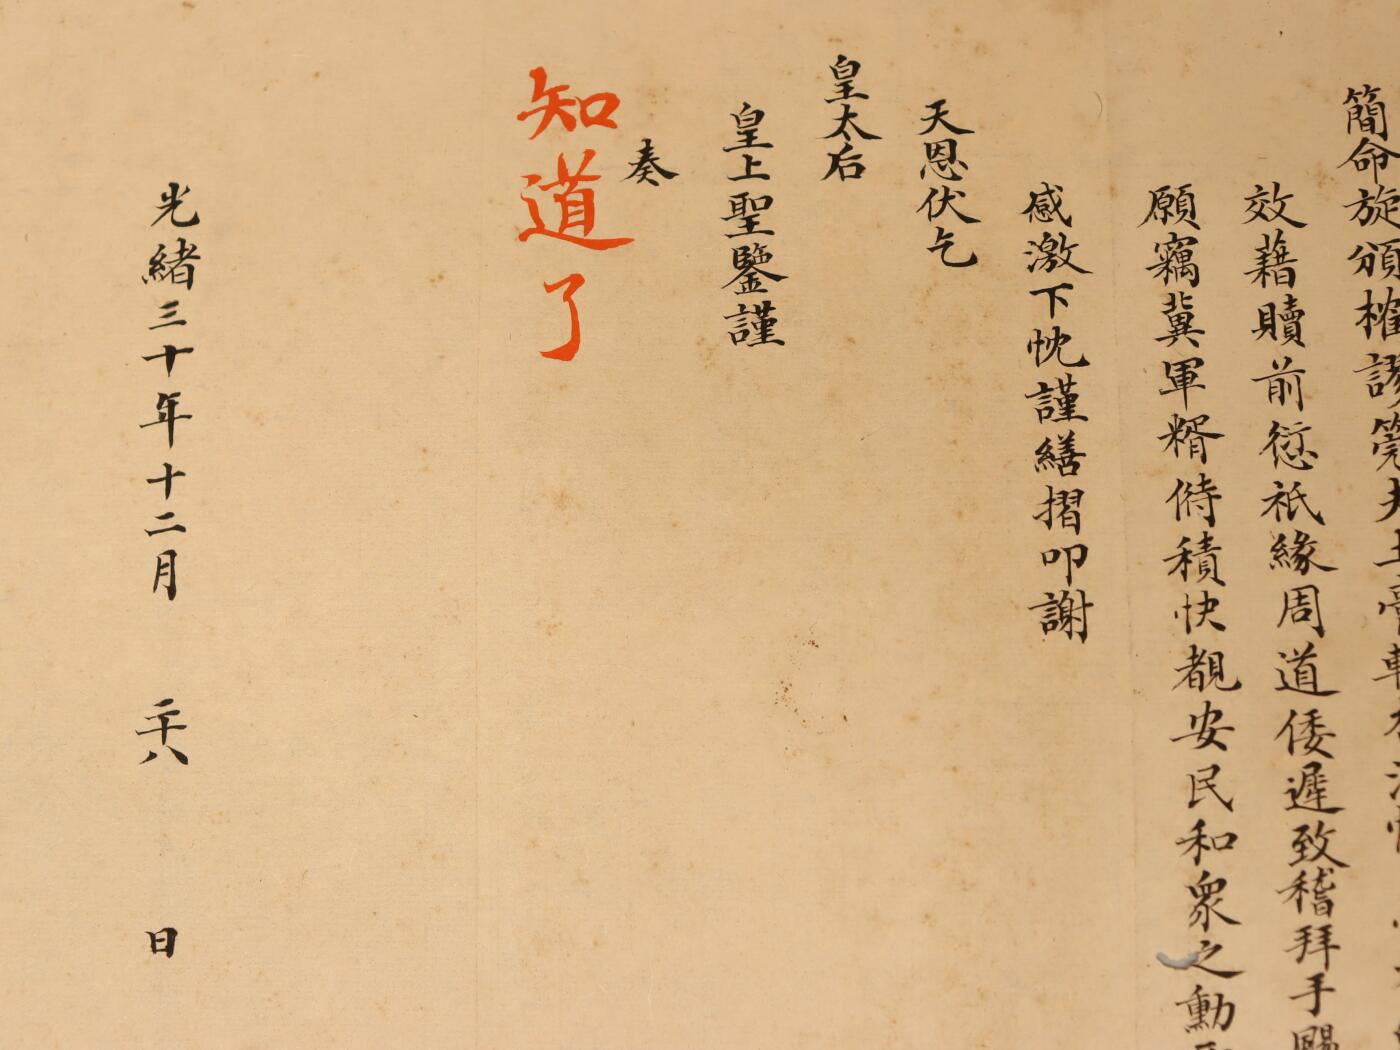 簡命旋頒榷
效藉贖前愆祇緣周道倭遲致稽拜手賜
願竊冀軍糈偫積快覩安民和衆之勳
感激下忱謹繕摺叩謝
天恩伏乞
皇太后
皇上聖鑒謹
奏
知道了
光緒三十年十二月二十八日